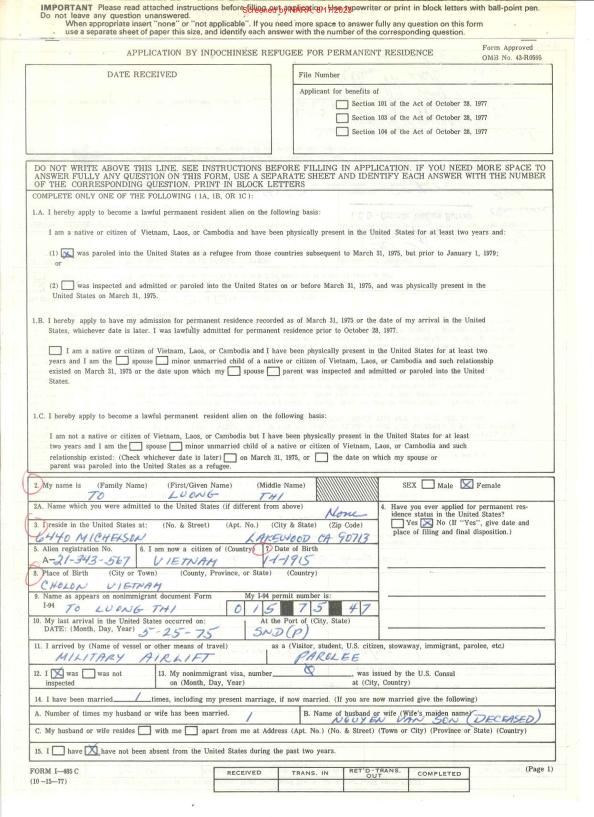 IMPORTANT Please read attached instructions before filling out application. Use typewriter or print in block letters with ball-point pen.
Screened by NARA, 8/17/2023
Do not leave any question unanswered.
When appropriate insert "none" or "not applicable". If you need more space to answer fully any question on this form
use a separate sheet of paper this size, and identify each answer with the number of the corresponding question.
APPLICATION BY INDOCHINESE REFUGEE FOR PERMANENT RESIDENCE
Form Approved
OMB No. 43-R0595
DATE RECEIVED
File Number
Applicant for benefits of
Section 101 of the Act of October 28, 1977
Section 103 of the Act of October 28, 1977
Section 104 of the Act of October 28, 1977
DO NOT WRITE ABOVE THIS LINE. SEE INSTRUCTIONS BEFORE FILLING IN APPLICATION. IF YOU NEED MORE SPACE TO
ANSWER FULLY ANY QUESTION ON THIS FORM, USE A SEPARATE SHEET AND IDENTIFY EACH ANSWER WITH THE NUMBER
OF THE CORRESPONDING QUESTION. PRINT IN BLOCK LETTERS
COMPLETE ONLY ONE OF THE FOLLOWING (1A, 1B, OR 1C):
1.A. I hereby apply to become a lawful permanent resident alien on the following basis:
I am a native or citizen of Vietnam, Laos, or Cambodia and have been physically present in the United States for at least two years and:
(1) X was paroled into the United States as a refugee from those countries subsequent to March 31, 1975, but prior to January 1, 1979;
or
(2) was inspected and admitted or paroled into the United States on or before March 31, 1975, and was physically present in the
United States on March 31, 1975.
1.B. I hereby apply to have my admission for permanent residence recorded as of March 31, 1975 or the date of my arrival in the United
States, whichever date is later. I was lawfully admitted for permanent residence prior to October 28, 1977.
I am a native or citizen of Vietnam, Laos, or Cambodia and I have been physically present in the United States for at least two
years and I am the spouse minor unmarried child of a native or citizen of Vietnam, Laos, or Cambodia and such relationship
existed on March 31, 1975 or the date upon which my spouse parent was inspected and admitted or paroled into the United
States.
1.C. I hereby apply to become a lawful permanent resident alien on the following basis:
I am not a native or citizen of Vietnam, Laos, or Cambodia but I have been physically present in the United States for at least
two years and I am the spouse minor unmarried child of a native or citizen of Vietnam, Laos, or Cambodia and such
relationship existed: (Check whichever date is later) on March 31, 1975, or the date on which my spouse or
parent was paroled into the United States as a refugee.
2. My name is (Family Name) (First/Given Name) (Middle Name)
TO LUONG THI
SEX Male X Female
2A. Name which you were admitted to the United States (if different from above)
None
4. Have you ever applied for permanent res-
idence status in the United States?
Yes X No (If "Yes", give date and
place of filing and final disposition.)
3. I reside in the United States at: (No. & Street) (Apt. No.) (City & State) (Zip Code)
6440 MICHELSON LAKEWOOD CA 90713
5. Alien registration No. 6. I am now a citizen of (Country) 7. Date of Birth
A-21-343-567 VIETNAM 1-1-1915
8. Place of Birth (City or Town) (County, Province, or State) (Country)
CHOLON VIETNAM
9. Name as appears on nonimmigrant document Form My I-94 permit number is:
I-94 TO LUONG THI 015 75 47
10. My last arrival in the United States occurred on: At the Port of (City, State)
DATE: (Month, Day, Year) 5-25-75 SND(P)
11. I arrived by (Name of vessel or other means of travel) as a (Visitor, student, U.S. citizen, stowaway, immigrant, parolee, etc.)
MILITARY AIRLIFT PAROLEE
12. I X was was not 13. My nonimmigrant visa, number 0 was issued by the U.S. Consul
inspected on (Month, Day, Year) at (City, Country)
14. I have been married 1 times, including my present marriage, if now married. (If you are now married give the following)
A. Number of times my husband or wife has been married. 1 B. Name of husband or wife (Wife's maiden name)
NGUYEN VAN SON (DECEASED)
C. My husband or wife resides with me apart from me at Address (Apt. No.) (No. & Street) (Town or City) (Province or State) (Country)
15. I have X have not been absent from the United States during the past two years.
FORM I-485 C
(10-15-77)
RECEIVED TRANS. IN RET'D-TRANS. OUT COMPLETED
(Page 1)